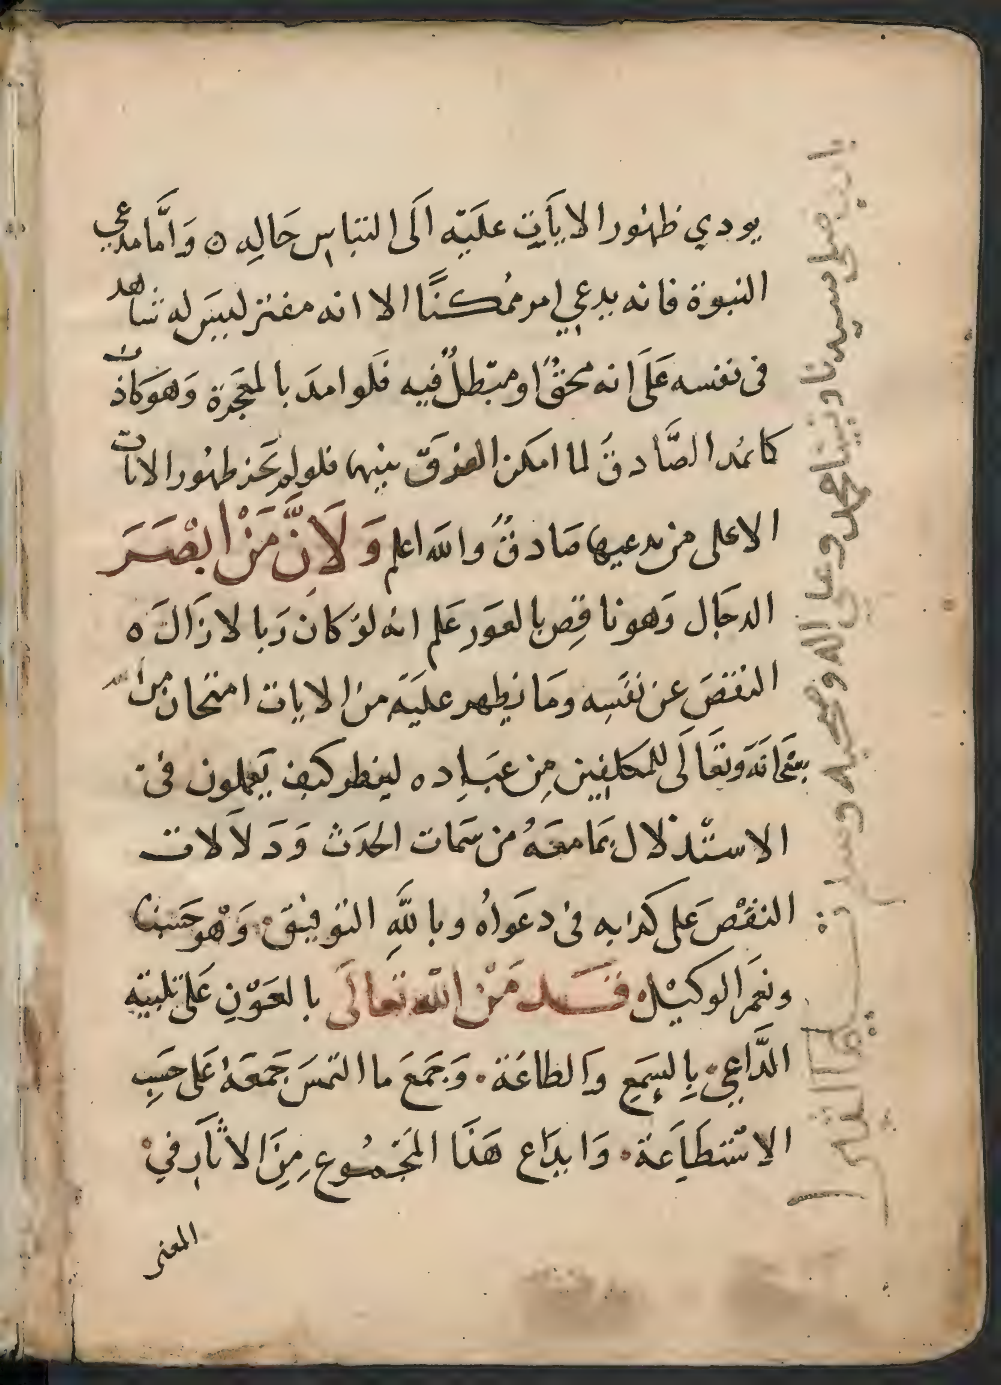 يودي ظهور الايات عليه الى التباس حاله ٥ وَامَّا مدعي
النبوة فانه يدعي امر ممكنًا الا انه مغتز ليس له شاهد
فى نفسه عَلَى انه محقٌ او مبطلٌ فيه فلو امدَ بالمعجزة وَهوَ كاذب
كما يمد الصَّادقَ لما امكن الفرق بينهما فلو لم يَجز ظهور الايات
الا على من يدعيها صَادقٌ والله اعلم وَلَانَّ مَنْ ابْصَرَ
الدجَال وَهو ناقِص بالعَور عَلم انه لوْ كانَ رَبا لازَالَ ٥
النقصَ عن نفسِه وما يظهر عليَه من الايات امتحان من الله
سبحَانَهَ وتعَالَى للمكلفِين مِن عبَادِه لينظر كيف يَعملون فىْ
الاستْدلال بمَا معَهُ من سَمات الحدَث وَدَلَالات
النقْص عَلى كذابه فى دعَواهُ وبالله التوفيق وَهْو حَسبنا
ونعَمَ الوكيْل فقَد مَنْ الله تعالَى بالعَوْنِ عَلى تلبيَة
الدَّاعِي بِالسمَعِ وَالطاعَة وَجَمعَ ما التمسَ جَمعَهُ عَلى حَسَبِ
الاِسْتطَاعَة وَابدَاع هَذا المَجْمُوع مِنَ الاثَار فيْ
المعنى
يا رب صلى على سيدنا ونبينا محمد وعلى اله وصحبه وسلم تسليما كثيرا